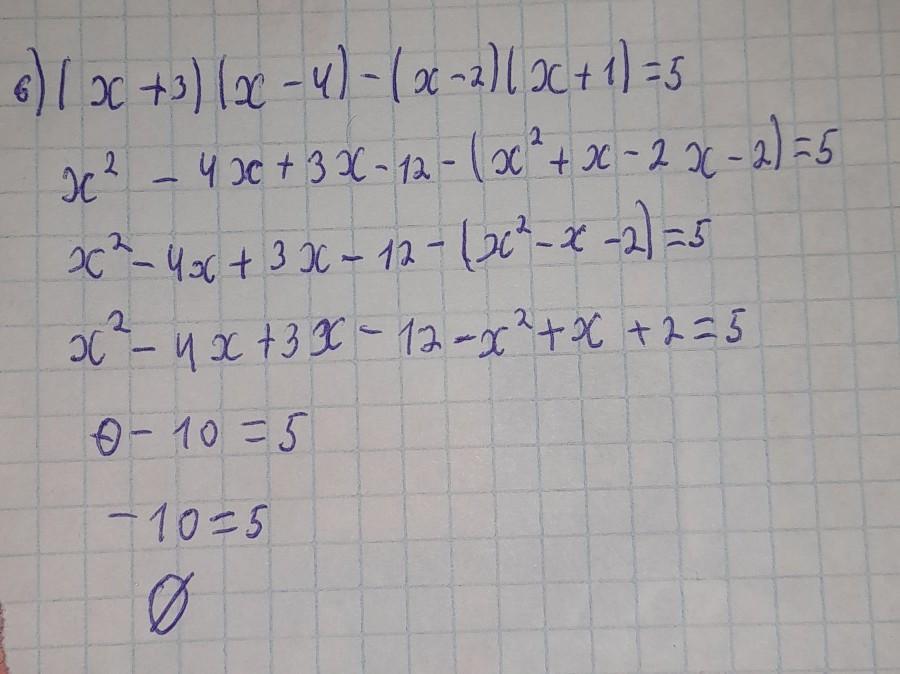 в) (x + 3) (x - 4) - (x - 2) (x + 1) = 5
x² - 4x + 3x - 12 - (x² + x - 2x - 2) = 5
x² - 4x + 3x - 12 - (x² - x - 2) = 5
x² - 4x + 3x - 12 - x² + x + 2 = 5
0 - 10 = 5
-10 = 5
Ø